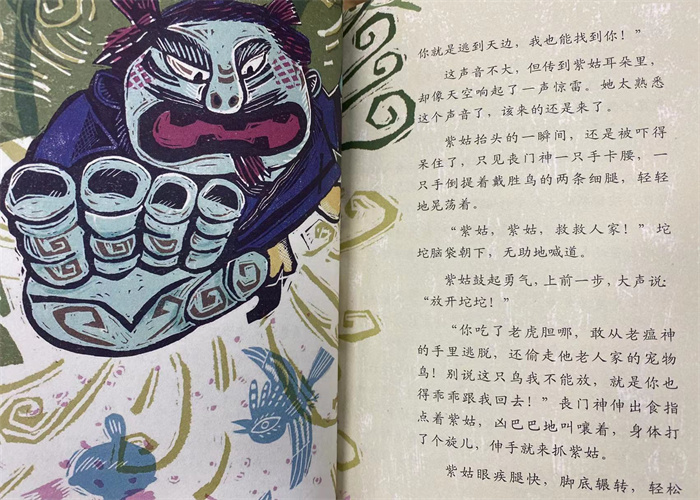 你就是逃到天边，我也能找到你！”
这声音不大，但传到紫姑耳朵里，
却像天空响起了一声惊雷。她太熟悉
这个声音了，该来的还是来了。
紫姑抬头的一瞬间，还是被吓得
呆住了，只见丧门神一只手卡腰，一
只手倒提着戴胜鸟的两条细腿，轻轻
地晃荡着。
“紫姑，紫姑，救救人家！”坨
坨脑袋朝下，无助地喊道。
紫姑鼓起勇气，上前一步，大声说：
“放开坨坨！”
“你吃了老虎胆哪，敢从老瘟神
的手里逃脱，还偷走他老人家的宠物
鸟！别说这只鸟我不能放，就是你也
得乖乖跟我回去！”丧门神伸出食指
点着紫姑，凶巴巴地叫嚷着，身体打
了个旋儿，伸手就来抓紫姑。
紫姑眼疾腿快，脚底辗转，轻松